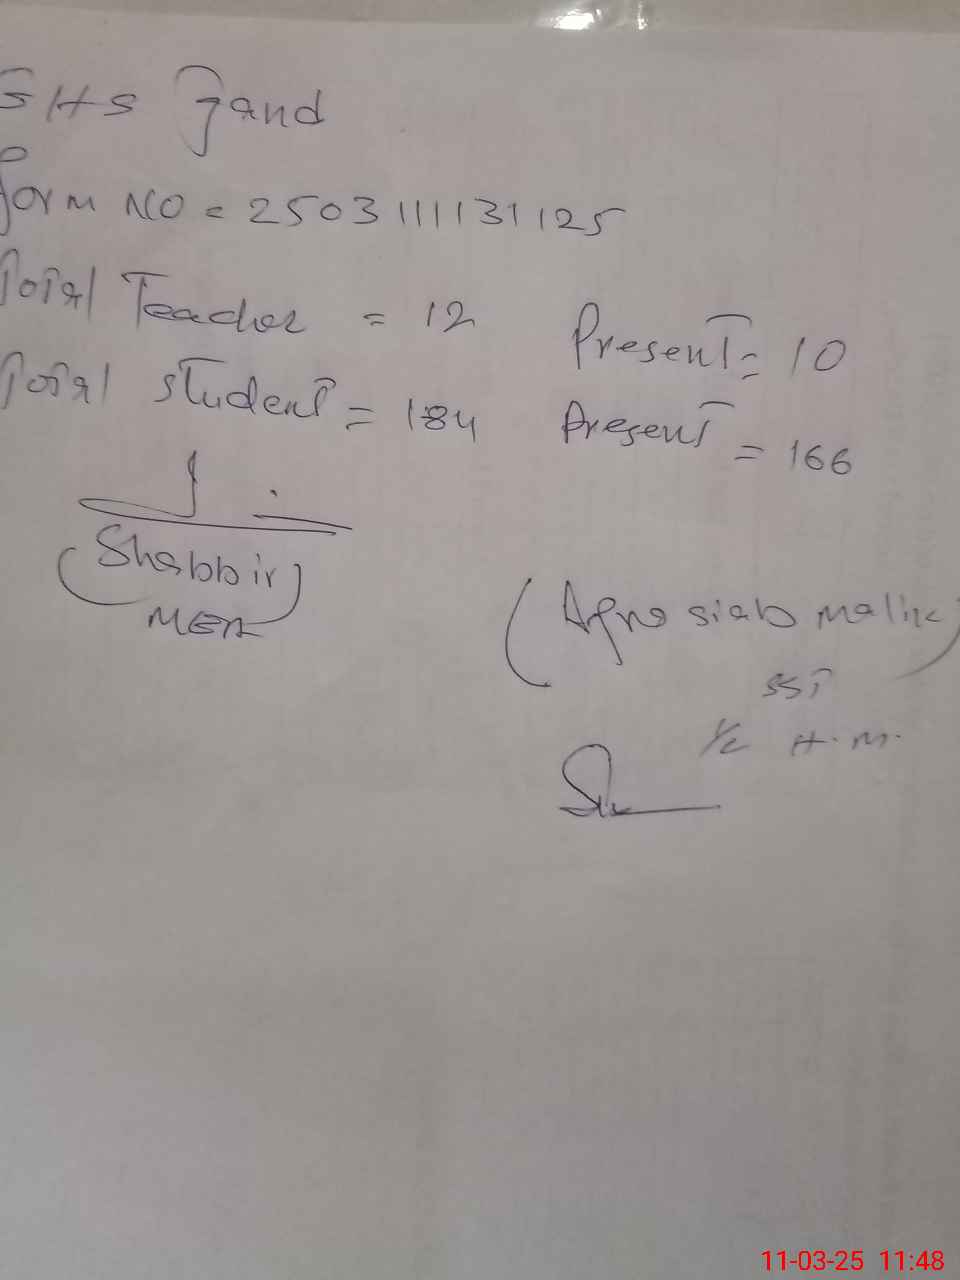 GHS Jand
Form NO = 2503111131125
Total Teacher = 12 Present = 10
Total student = 184 Present = 166
(Shabbir)
MEA
(Afrasiab malik)
SST
I/C H.M.
11-03-25 11:48